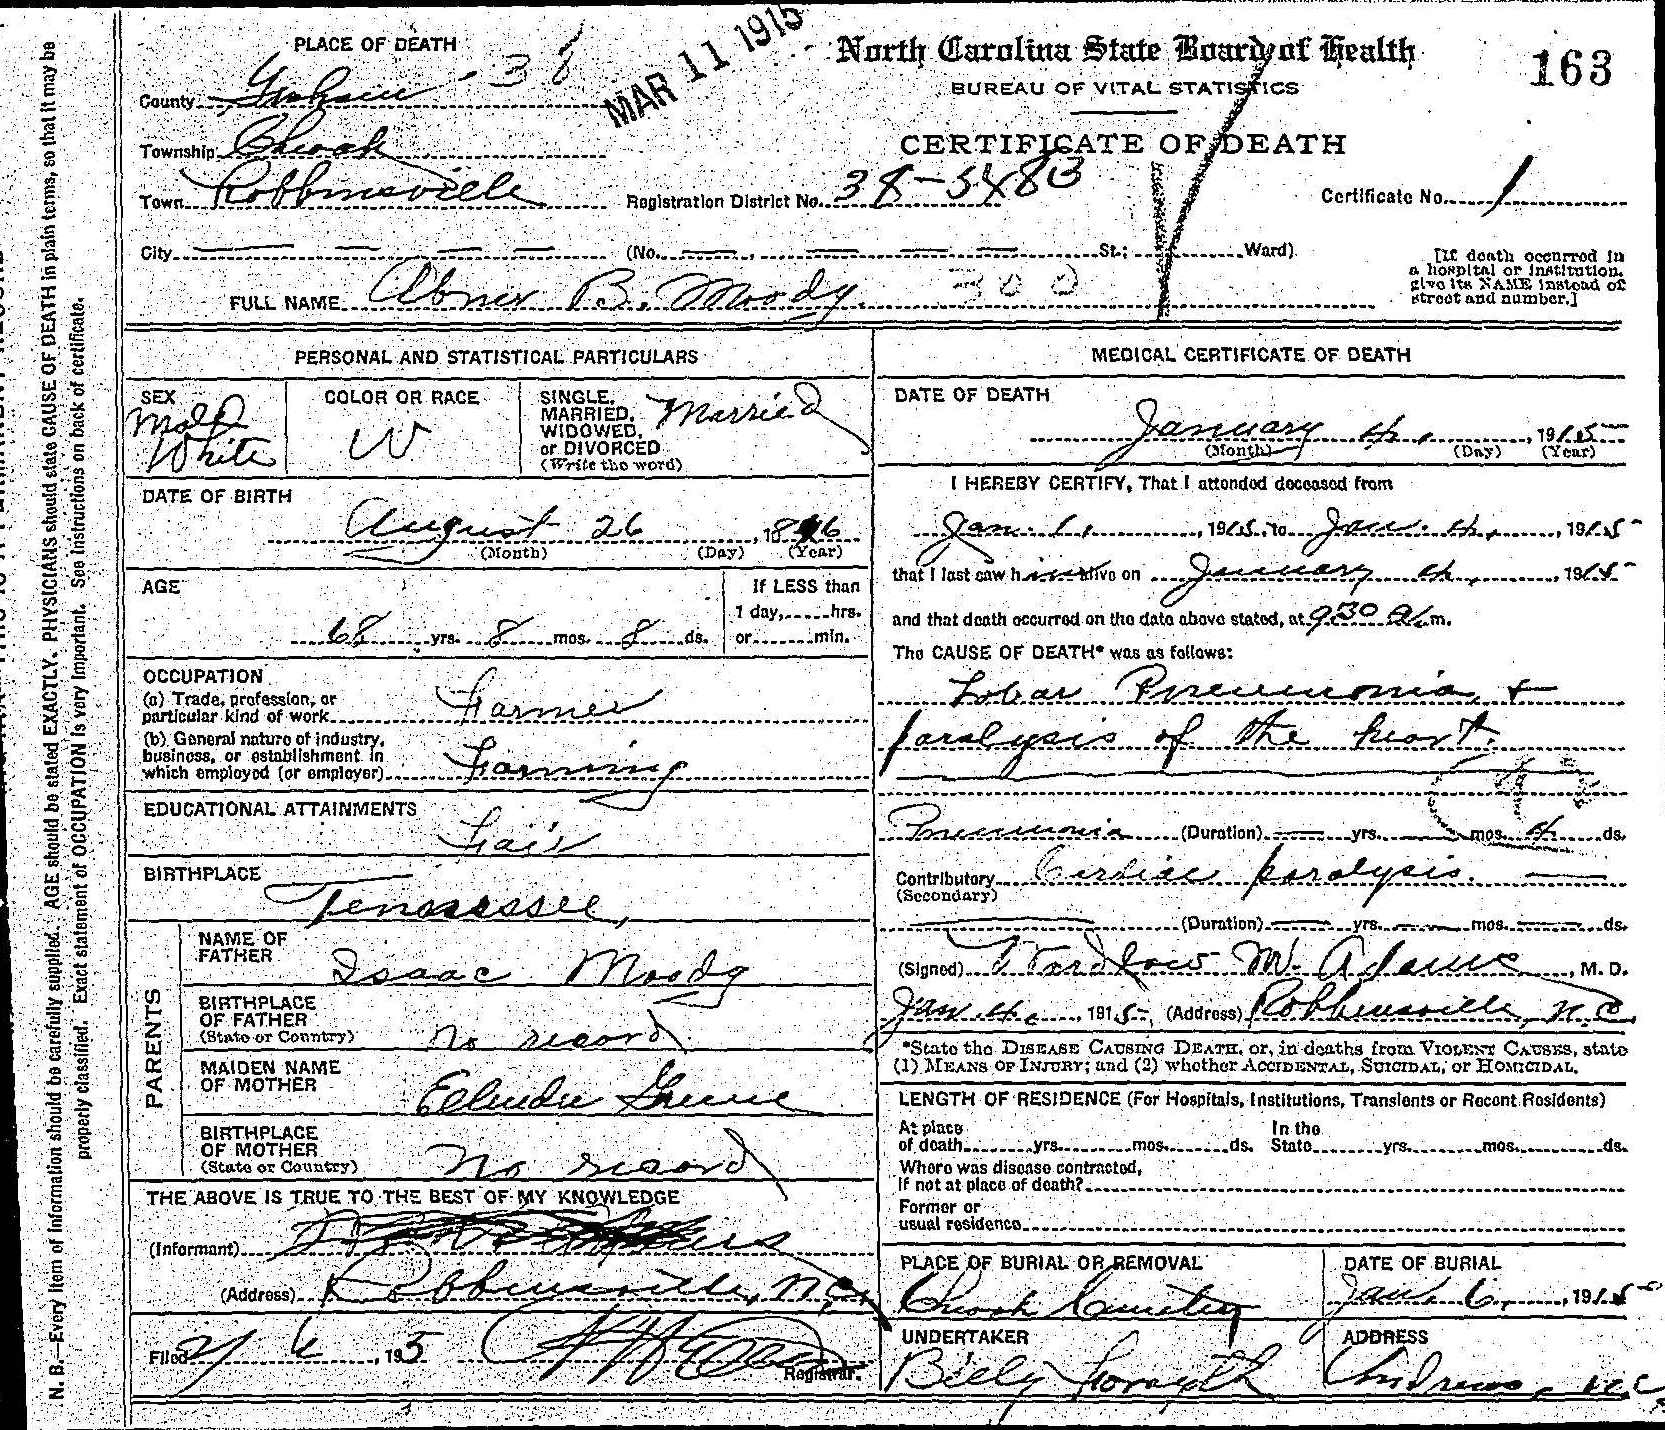 PLACE OF DEATH
MAR 11 1915
North Carolina State Board of Health
163
BUREAU OF VITAL STATISTICS
County Graham - 38
CERTIFICATE OF DEATH
Township Cheoah
Town Robbinsville Registration District No. 38-5483 Certificate No. 1
City (No. St.; Ward)
[If death occurred in a hospital or institution, give its NAME instead of street and number.]
FULL NAME Abner B. Moody. 300
PERSONAL AND STATISTICAL PARTICULARS
SEX Male White
COLOR OR RACE W
SINGLE, MARRIED, WIDOWED, or DIVORCED (Write the word) Married
DATE OF BIRTH
August 26, 1846
(Month) (Day) (Year)
AGE
If LESS than
1 day, hrs.
68 yrs. 8 mos. 8 ds. or min.
OCCUPATION
(a) Trade, profession, or
particular kind of work Farmer
(b) General nature of industry,
business, or establishment in
which employed (or employer) Farming
EDUCATIONAL ATTAINMENTS
Fair
BIRTHPLACE
Tennessee,
PARENTS
NAME OF FATHER Isaac Moody
BIRTHPLACE OF FATHER (State or Country) no record
MAIDEN NAME OF MOTHER Greene
BIRTHPLACE OF MOTHER (State or Country) no record
THE ABOVE IS TRUE TO THE BEST OF MY KNOWLEDGE
(Informant)
(Address) Robbinsville, N.C.
Filed 1915
Registrar.
MEDICAL CERTIFICATE OF DEATH
DATE OF DEATH
January 4, 1915
(Month) (Day) (Year)
I HEREBY CERTIFY, That I attended deceased from
Jan. 1, 1915, to Jan. 4, 1915
that I last saw him alive on January 4, 1915
and that death occurred on the date above stated, at 9 30 A.m.
The CAUSE OF DEATH* was as follows:
Lobar Pneumonia, +
paralysis of the heart.
Pneumonia (Duration) yrs. mos. 4 ds.
Contributory paralysis.
(Secondary)
(Duration) yrs. mos. ds.
(Signed) Wardlow M. Adams, M. D.
Jan 4, 1915, (Address) Robbinsville, N.C.
*State the DISEASE CAUSING DEATH, or, in deaths from VIOLENT CAUSES, state
(1) MEANS OF INJURY; and (2) whether ACCIDENTAL, SUICIDAL, or HOMICIDAL.
LENGTH OF RESIDENCE (For Hospitals, Institutions, Transients or Recent Residents)
At place In the
of death yrs. mos. ds. State yrs. mos. ds.
Where was disease contracted,
If not at place of death?
Former or
usual residence
PLACE OF BURIAL OR REMOVAL
Cheoah Cemetery
DATE OF BURIAL
Jan. 6, 1915
UNDERTAKER
Billy Forsyth
ADDRESS
Andrews, N.C.
N. B.—Every item of information should be carefully supplied. AGE should be stated EXACTLY. PHYSICIANS should state CAUSE OF DEATH in plain terms, so that it may be
properly classified. Exact statement of OCCUPATION is very important. See instructions on back of certificate.